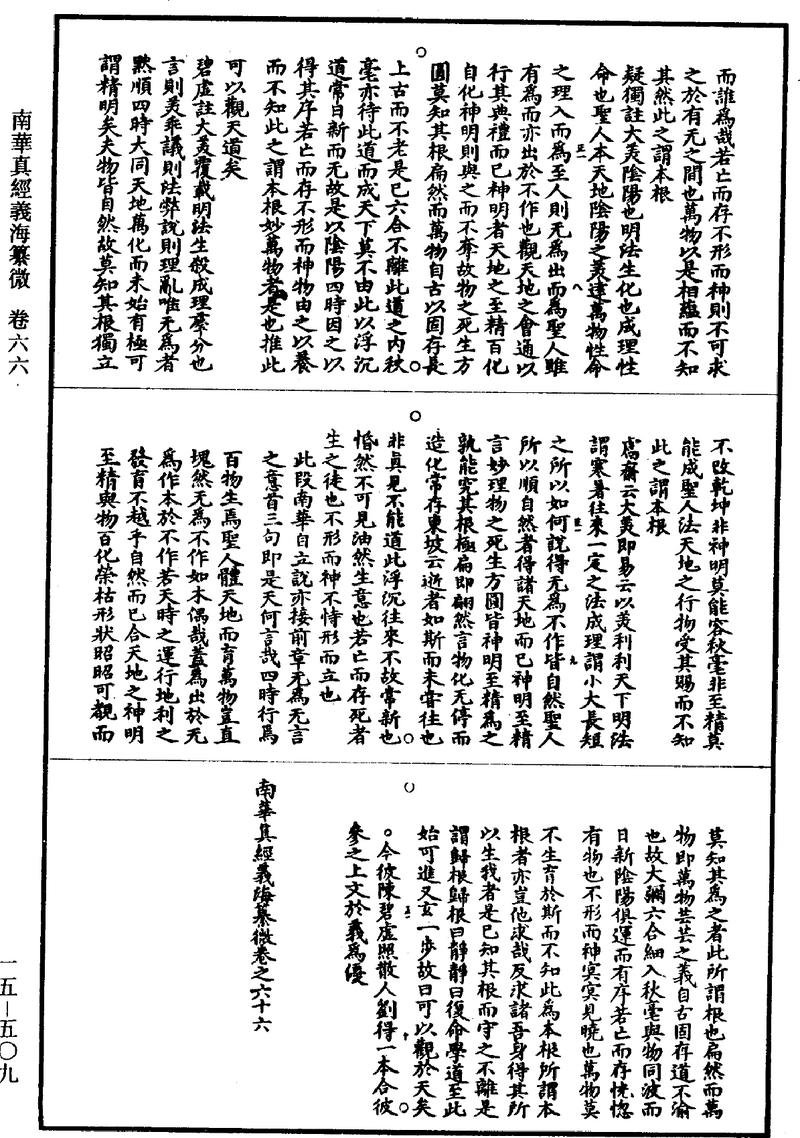 南華真經義海纂微 卷六六
一五—五〇九
而誰為哉若亡而存不形而神則不可求
之於有无之間也萬物以是相蘊而不知
其然此之謂本根
疑獨註大美陰陽也明法生化也成理性
命也聖人本天地陰陽之美達萬物性命
之理入而為至人則无為出而為聖人雖
有為而亦出於不作也觀天地之會通以
行其典禮而已神明者天地之至精百化
自化神明則與之而不奪故物之死生方
圓莫知其根扁然而萬物自古以固存長
上古而不老是已六合不離此道之內秋
毫亦待此道而成天下莫不由此以浮沉
道常日新而无故是以陰陽四時因之以
得其序若亡而存不形而神物由之以養
而不知此之謂本根妙萬物者是也推此
可以觀天道矣
碧虛註大美覆載明法生殺成理羣分也
言則美乖議則法弊說則理亂唯无為者
黙順四時大同天地萬化而未始有極可
謂精明矣夫物皆自然故莫知其根獨立
不改乾坤非神明莫能容秋毫非至精莫
能成聖人法天地之行物受其賜而不知
此之謂本根
鬳齋云大美即易云以美利利天下明法
謂寒暑往來一定之法成理謂小大長短
之所以如何說得无為不作皆自然聖人
所以順自然者得諸天地而已神明至精
言妙理物之死生方圓皆神明至精為之
孰能究其根極扁即翩然言物化无停而
造化常存東坡云逝者如斯而未嘗往也
非真見不能道此浮沉往來不故常新也
惛然不可見油然生意也若亡而存死者
生之徒也不形而神不恃形而立也
此段南華自立說亦接前章无為无言
之意首三句即是天何言哉四時行焉
百物生焉聖人體天地而育萬物豈直
塊然无為不作如木偶哉蓋為出於无
為作本於不作若天時之運行地利之
發育不越乎自然而已合天地之神明
至精與物百化榮枯形狀昭昭可覩而
莫知其為之者此所謂根也扁然而萬
物即萬物芸芸之義自古固存道不渝
也故大彌六合細入秋毫與物同波而
日新陰陽俱運而有序若亡而存恍惚
有物也不形而神冥冥見曉也萬物莫
不生育於斯而不知此為本根所謂本
根者亦豈他求哉反求諸吾身得其所
以生我者是已知其根而守之不離是
謂歸根歸根曰靜靜曰復命學道至此
始可進又玄一步故曰可以觀於天矣
。今彼陳碧虛照散人劉得一本合彼
參之上文於義為優
南華真經義海纂微卷之六十六